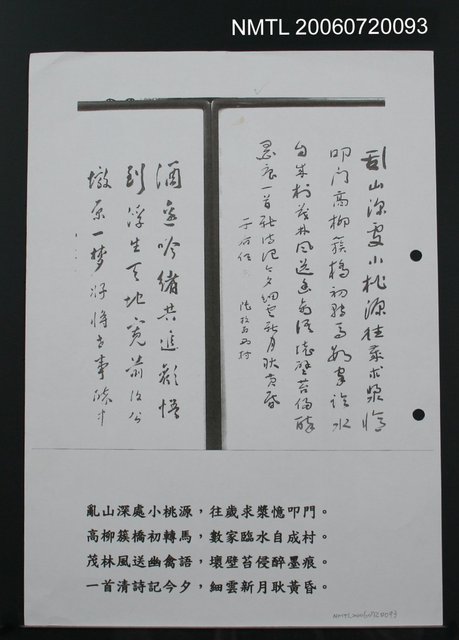 NMTL 20060720093
乱山深處小桃源往歲求漿憶
叩门高柳簇橋初轉馬數家臨水
自成村茂林風送幽禽語壞壁苔侵醉
墨痕一首清詩記今夕細雲新月耿黄昏
陸放翁西村
酒邊吟緒共追歡悟
到浮生天地寬
墩原一梦好將
亂山深處小桃源，往歲求漿憶叩門。
高柳簇橋初轉馬，數家臨水自成村。
茂林風送幽禽語，壞壁苔侵醉墨痕。
一首清詩記今夕，細雲新月耿黃昏。
NMTL20060720093